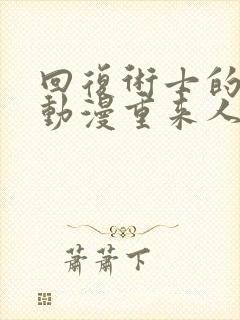 回復術士的
動漫重来人
蕭蕭下